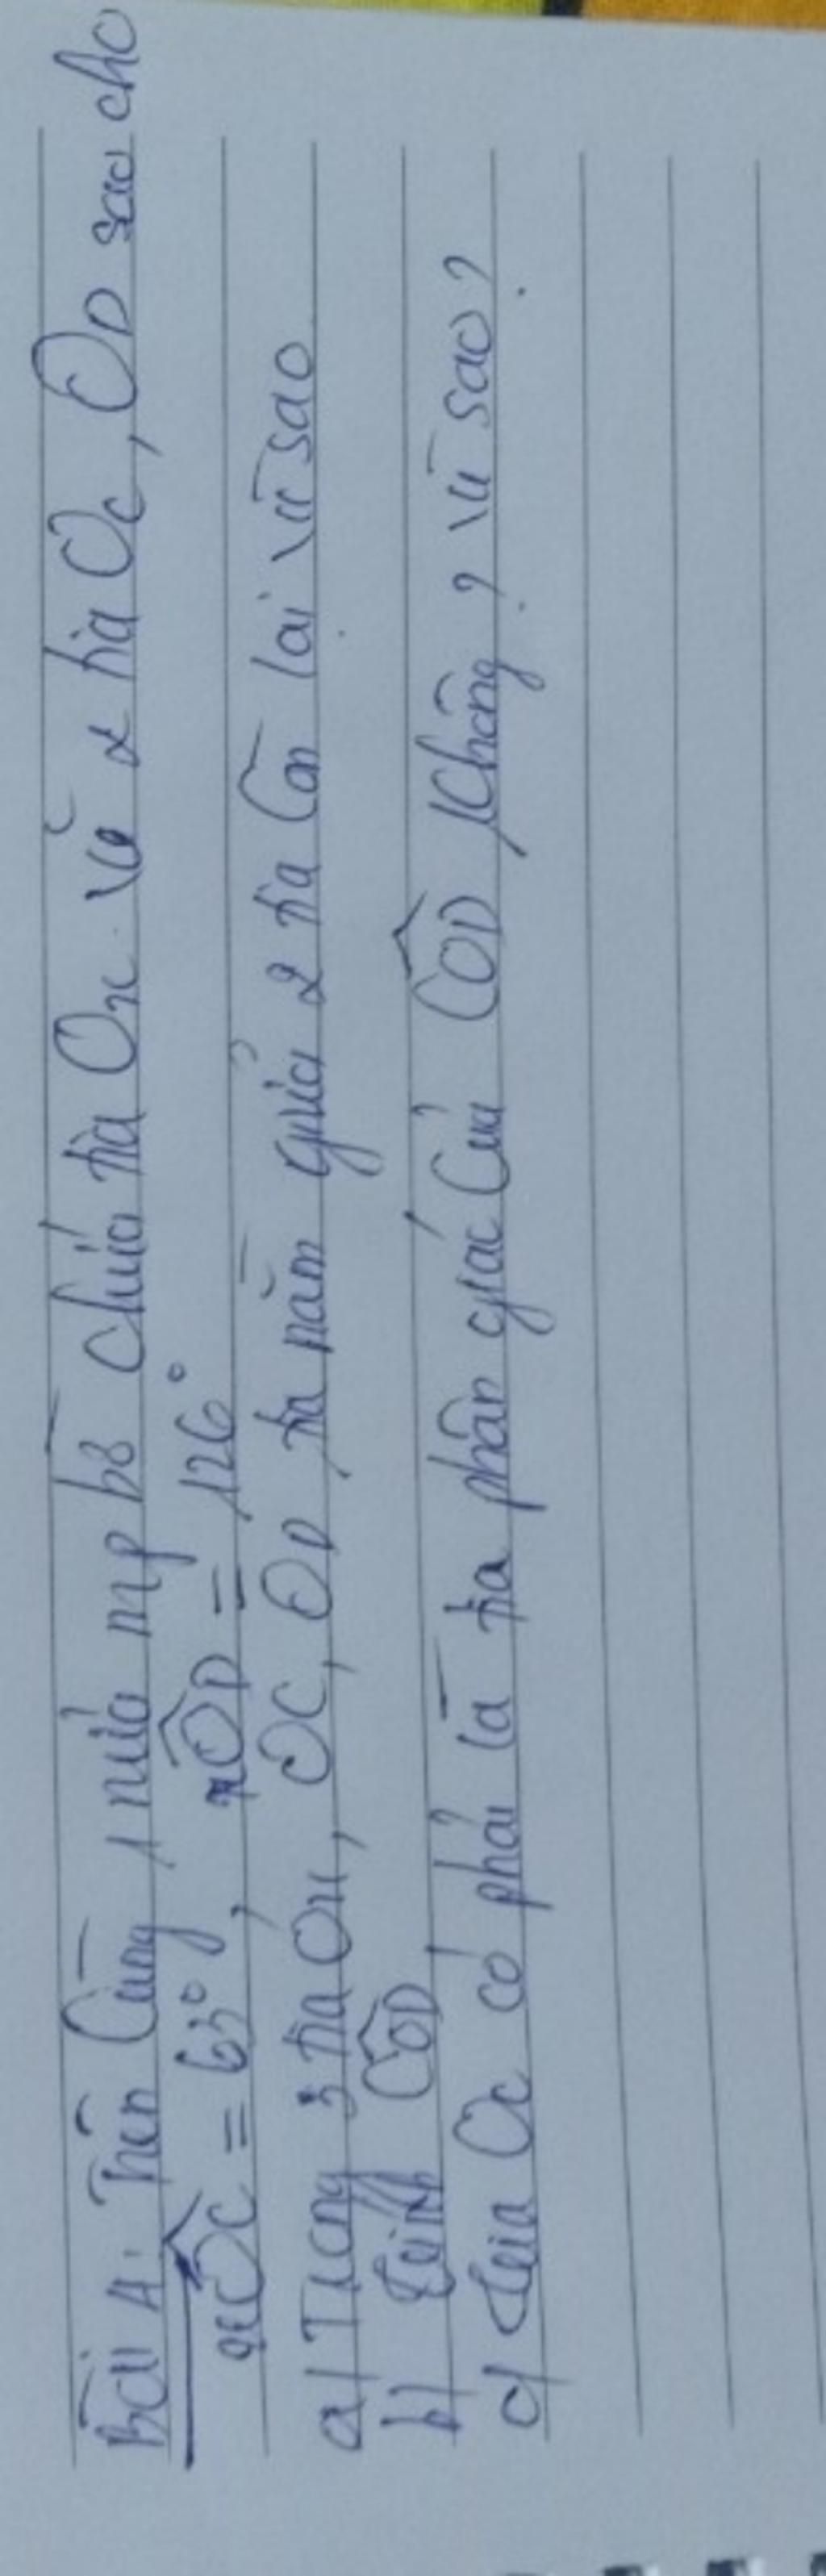 Bài 4. Trên Cùng 1 nửa mp bờ chứa tia Ox. Vẽ 2 tia OC, OD sao cho
xÔC = 63°, xÔD = 126°
a) Trong 3 tia Ox, OC, OD, tia nằm giữa 2 tia Còn lại Vì sao
b) Tính CÔD
c) Tia OC có phải là tia phân giác Của CÔD Không? Vì sao?